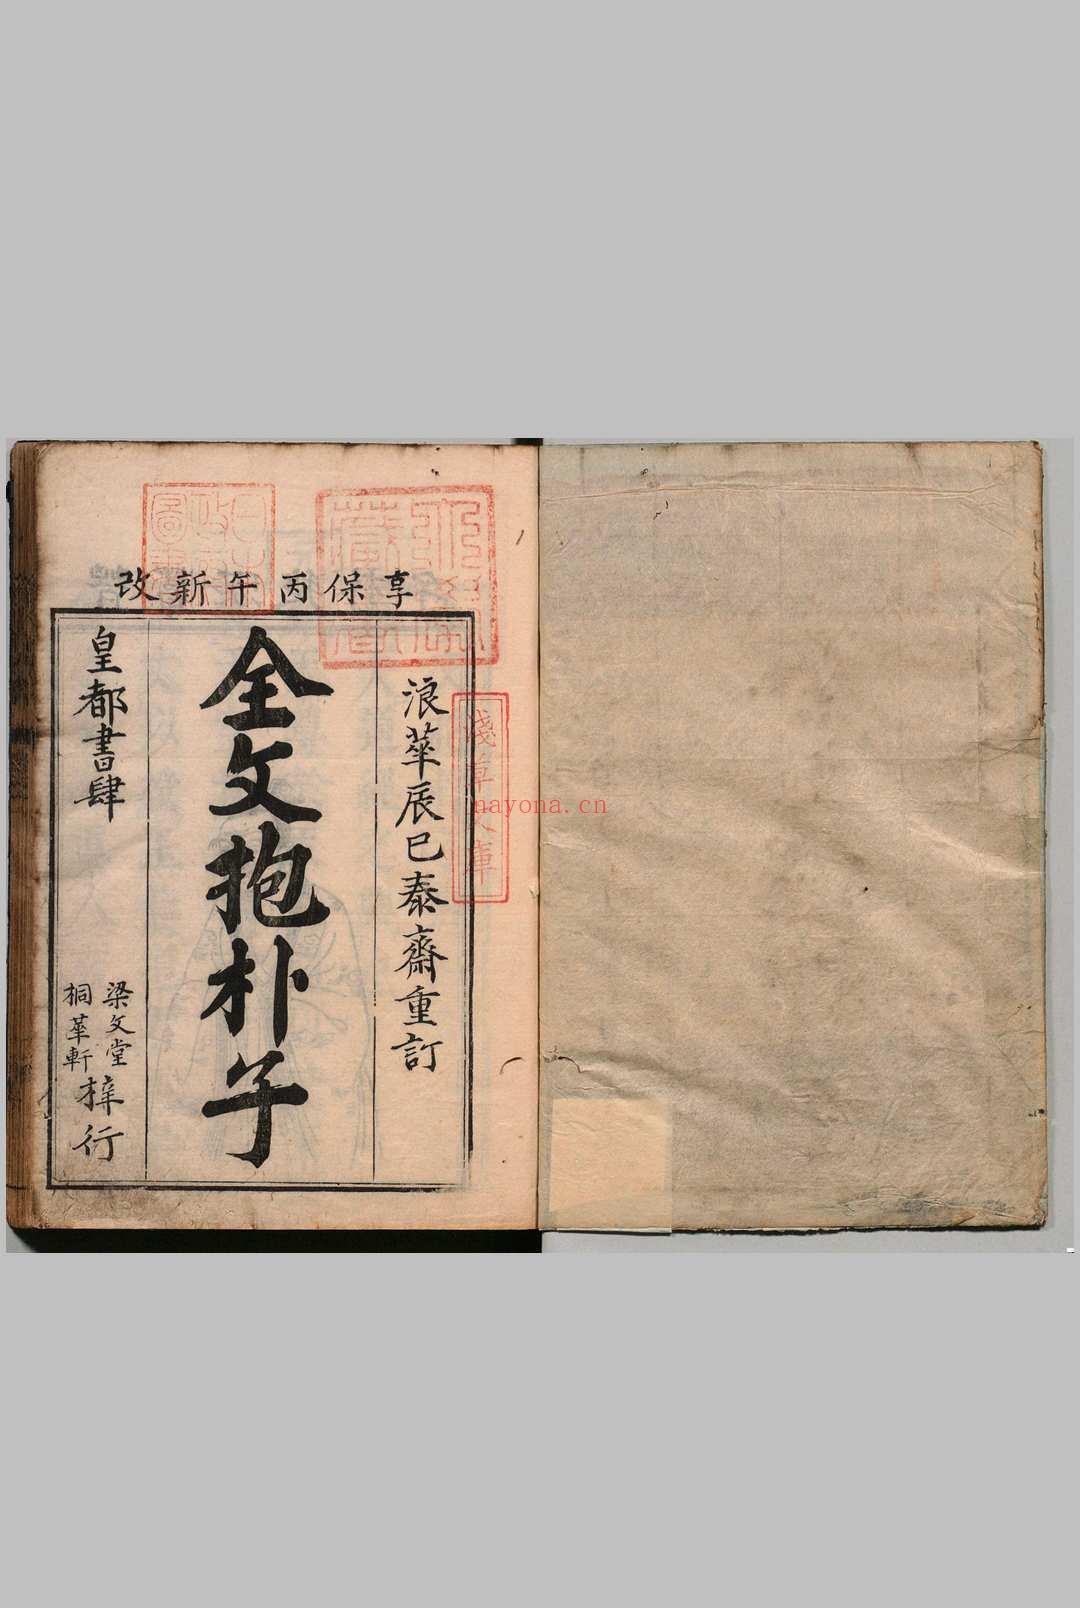 享保丙午新改
浪華辰巳泰齋重訂
全文抱朴子
皇都書肆
梁文堂
桐華軒
梓行
日本
政府
圖書
淺草文庫
nayona.cn